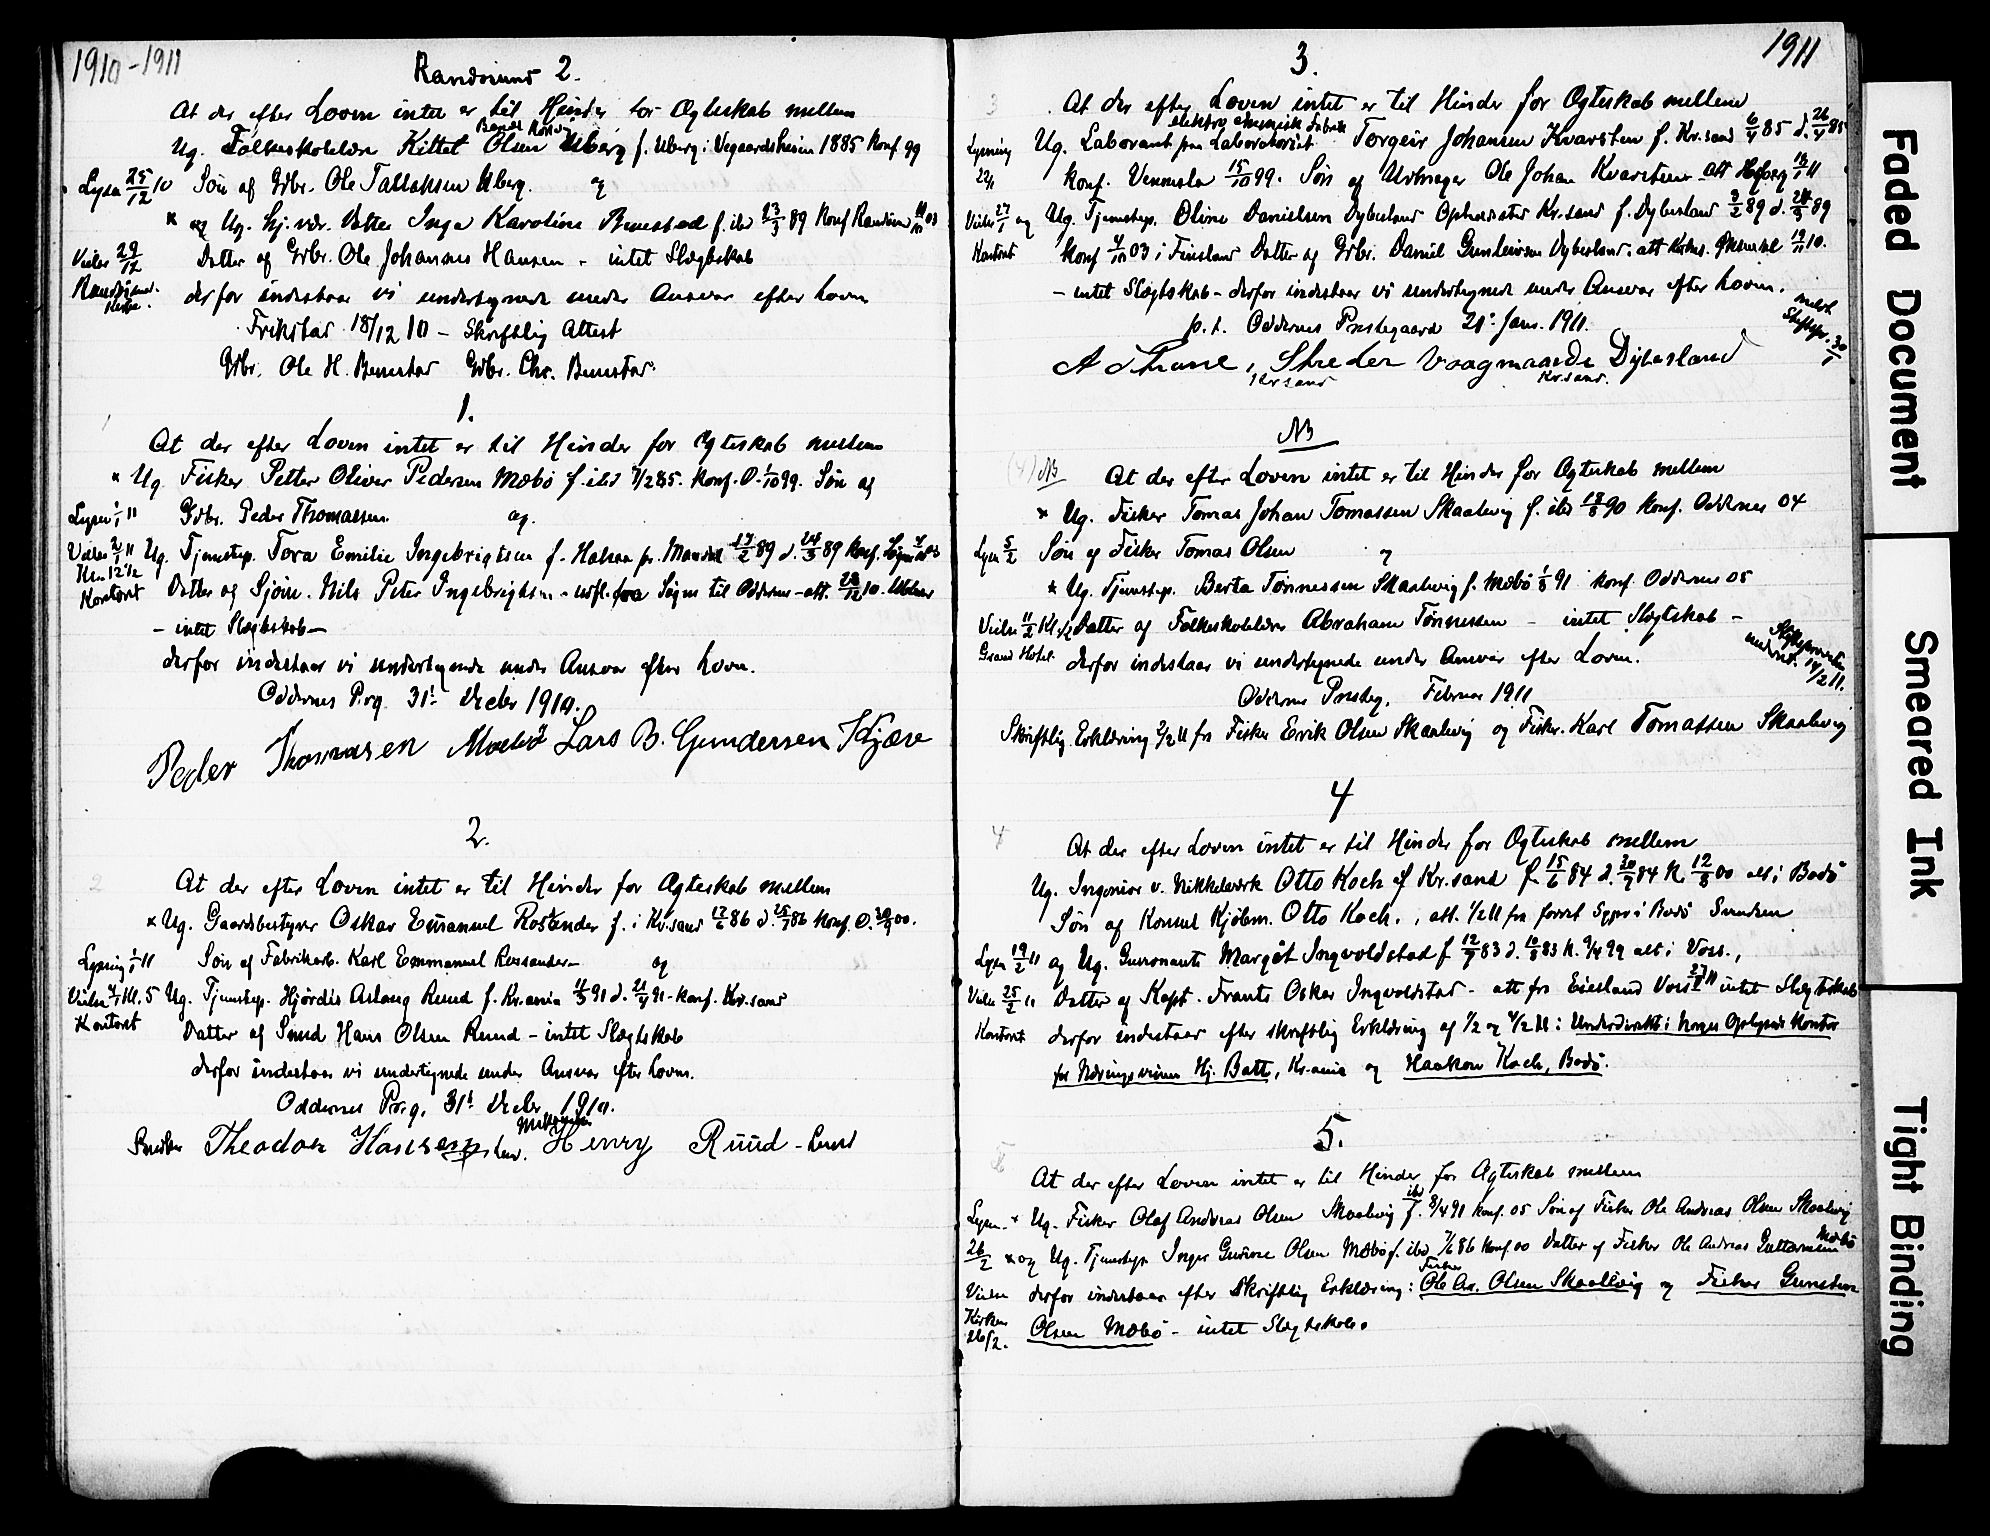 1910-1911
Randøsund 2.
At der efter Loven intet er til Hinder for Ægteskab mellem
Ug. Folkeskolelær Kittel Olsen Uberg f. Uberg i Vegaardsheien 1885 Konf 99
Lysn 25/12 10 Søn af Gdbr. Ole Tallaksen Uberg. og
× og Ug. Hj.vær. Datter Inga Karoline Benestad f. ibd 23/3 89 Konf Randøsund 03
Vielse 29/12 Datter af Gdbr. Ole Johannes Hansen - intet Slægtskab
Randøsund Kirke. derfor indestaar vi undertegnede under Ansvar efter Loven
Frikstad 18/12 10 - Skriftlig Attest
Gdbr. Ole H. Benestad Gdbr. Chr. Benestad.
1.
At der efter Loven intet er til Hinder for Ægteskab mellem
× Ug. Fisker Petter Oliver Pedersen Mæbø f. ibd 85. Konf. O. 1/10 99. Søn af
Lysn 1/1 11 Gdbr. Peder Thomassen. og.
Vielse 2/1 11 Ug. Tjenestep. Tora Emilie Ingebrigtsen f. Halsaa pr. Mandal 17/2 89 d. 24/3 89 Konf. Søgne
Kl. 12 1/2
Kontoret Datter af Sjøm. Nils Peter Ingebrigtsen - udfl. fra Søgne til Oddernes - att. 28/12 10.
- intet Slægtskab -
derfor indestaar vi undertegnede under Ansvar efter Loven.
Oddernes Prg. 31t Decbr 1910.
Peder Thomassen Mæbø Lars B. Gundersen Kjære
2.
2 At der efter Loven intet er til Hinder for Ægteskab mellem
× Ug. Gaardsbestyrer Oskar Emanuel Rosander f. i Kr.sand 17/6 86 d. 25/7 86 Konf. O. 30/9 00.
Lysning 1/1 11 Søn af Fabrikarb. Karl Emmanuel Rossander - og
Vielse Kl. 5 Ug. Tjenestep. Hjördis Aslaug Ruud f. Kr.ania 11/3 91 d. 21/4 91 - konf. Kr.sand
Kontoret Datter af Smed Hans Olsen Ruud - intet Slægtskab
derfor indestaar vi undertegnede under Ansvar efter Loven.
Oddernes Prg. 31t Decbr 1910.
Snedker Theodor Hansen Henry Ruud - Lund
3.
1911
3 At der efter Loven intet er til Hinder for Ægteskab mellem
elektro chemisk Fabrik
Lysning Ug. Laborant paa Laboratoriet Torgeir Johansen Kvarsten f. Kr.sand 6/4 85 d. 26/4 85
22/1 konf. Vennesla 15/10 99. Søn af Ole Johan Kvarsten - att 16/1 11
Vielse 27/1 og Ug. Tjenestep. Oline Danielsen Dybesland Opholdssted Kr.sand f. Dybesland 3/2 89 d. 24/3 89
Kontoret Konf 4/10 03 i Finsland Datter af Gdbr. Daniel Gunsteinsen Dybesland. att 19/11 10.
- intet Slægtskab - derfor indestaar vi undertegnede under Ansvar efter Loven.
meldt Stiftspr. 30/1
p.t. Oddernes Prestegaard 21: Jan. 1911.
A Thrane, Stræder Vaagmaarde Dybesland
Kr.sand Kr.sand.
NB
(4) NB At der efter Loven intet er til Hinder for Ægteskab mellem
× Ug. Fisker Tomas Johan Tomassen Skaalevig f. ibd 18/8 90 Konf. Oddernes 04
Lysn 5/2 Søn af Fisker Tomas Olsen og
× Ug. Tjenestep. Berta Tønnessen Skaalevig f. Mæbø 1/8 91 konf. Oddernes 05
Vielse 11/2 Kl. 1/2 Datter af Folkeskolelær Abraham Tønnessen - intet Slægtskab -
Grand Hotel. derfor indestaar vi undertegnede under Ansvar efter Loven.
Stiftsprovsten underret. 14/2 11.
Oddernes Prestg. Februar 1911
Skriftlig Erklæring 2/2 11 fra Fisker Erik Olsen Skaalevig og Fisker. Karl Tomassen Skaalevig
4
4 At der efter Loven intet er til Hinder for Ægteskab mellem
Ug. Ingeniør v. Nikkelværk Otto Koch af Kr.sand f. 15/6 84 d. 30/7 84 K. 12/8 00 alt i Bodø
Søn af Konsul Kjøbm. Otto Koch., att. 1/2 11 fra forret Sgpr i Bodø
Lysn 19/2 11 og Ug. Guvernante Margit Ingvoldstad f 12/7 83 d. 10/8 83 K. 9/4 99 alt i Voss.,
Vielse 25/2 11 Datter af Kapt. Frants Oskar Ingvoldstad - att fra Voss intet Slægtskab
Kontoret derfor indestaar efter skriftlig Erklæring af 1/2 og 4/2 11: Underdirekt i Norges Oplysnds Kontor
for Næringsveiene Hj. Batt, Kr.ania og Haakon Koch, Bodø.
5.
5 At der efter Loven intet er til Hinder for Ægteskab mellem
Lysn. × Ug. Fisker Olaf Andreas Olsen Skaalevig f. ibd 8/4 91 konf. 05 Søn af Fisker Ole Andreas Olsen Skaalevig
26/2 × og Ug. Tjenestep. Inger Olsen Mæbø f. ibd 7/6 86 konf 00 Datter af Fisker Ole Andreas Guttormsen Mæbø
Vielse derfor indestaar efter Skriftlig Erklæring: Fisker Ole An. Olsen Skaalevig og Fisker Gunsten
Kirken
26/2. Olsen Mæbø - intet Slægtskab.
Faded Document
Smeared Ink
Tight Binding